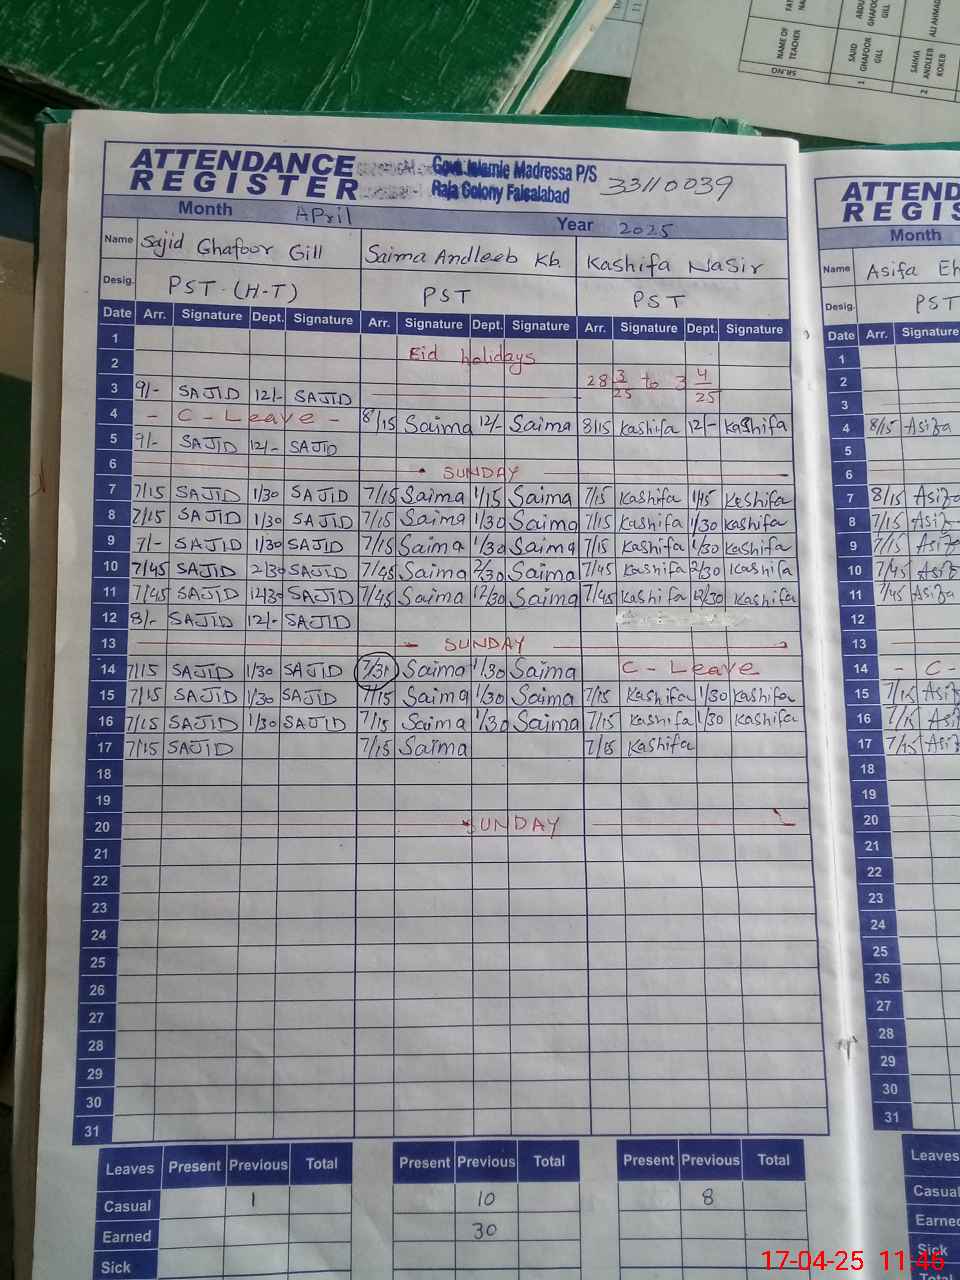 NAME OF TEACHER
SR.NO
SAJID GHAFOOR GILL
1
SAIMA ANDLEEB KOKEB
2
ATTENDANCE REGISTER
Govt. Islamie Madressa P/S
Raja Colony Faisalabad
33110039
Month April Year 2025
Name Sajid Ghafoor Gill Saima Andleeb Kb. Kashifa Nasir
Desig. PST-(H-T) PST PST
Date Arr. Signature Dept. Signature Arr. Signature Dept. Signature Arr. Signature Dept. Signature
1
2 Eid holidays
28 3/25 to 3 4/25
3 9/- SAJID 12/- SAJID
4 - C - Leave - 8/15 Saima 12/- Saima 8/15 Kashifa 12/- Kashifa
5 9/- SAJID 12/- SAJID
6 SUNDAY
7 7/15 SAJID 1/30 SAJID 7/15 Saima 1/15 Saima 7/15 Kashifa 1/15 Kashifa
8 7/15 SAJID 1/30 SAJID 7/15 Saima 1/30 Saima 7/15 Kashifa 1/30 Kashifa
9 7/- SAJID 1/30 SAJID 7/15 Saima 1/30 Saima 7/15 Kashifa 1/30 Kashifa
10 7/45 SAJID 2/30 SAJID 7/45 Saima 2/30 Saima 7/45 Kashifa 2/30 Kashifa
11 7/45 SAJID 12/30 SAJID 7/45 Saima 12/30 Saima 7/45 Kashifa 12/30 Kashifa
12 8/- SAJID 12/- SAJID
13 SUNDAY
14 7/15 SAJID 1/30 SAJID 7/31 Saima 1/30 Saima C - Leave
15 7/15 SAJID 1/30 SAJID 7/15 Saima 1/30 Saima 7/15 Kashifa 1/30 Kashifa
16 7/15 SAJID 1/30 SAJID 7/15 Saima 1/30 Saima 7/15 Kashifa 1/30 Kashifa
17 7/15 SAJID 7/15 Saima 7/15 Kashifa
18
19
20 SUNDAY
21
22
23
24
25
26
27
28
29
30
31
Leaves Present Previous Total Present Previous Total Present Previous Total
Casual 1 10 8
Earned 30
Sick
ATTEND
REGIS
Month
Name Asifa Eh
Desig. PST
Date Arr. Signature
1
2
3
4 8/15 Asifa
5
6
7 8/15 Asifa
8 7/15 Asifa
9 7/15 Asifa
10 7/45 Asifa
11 7/45 Asifa
12
13
14 - C -
15 7/15 Asifa
16 7/15 Asifa
17 7/15 Asifa
18
19
20
21
22
23
24
25
26
27
28
29
30
31
Leaves
Casual
Earned
Sick
Total
17-04-25 11:46